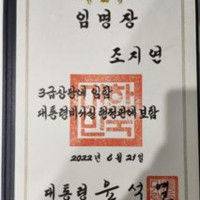 임명장
조지연
3급상당에 임함
대통령비서실 행정관에 보함
2022년 6월 21일
대통령 윤석열